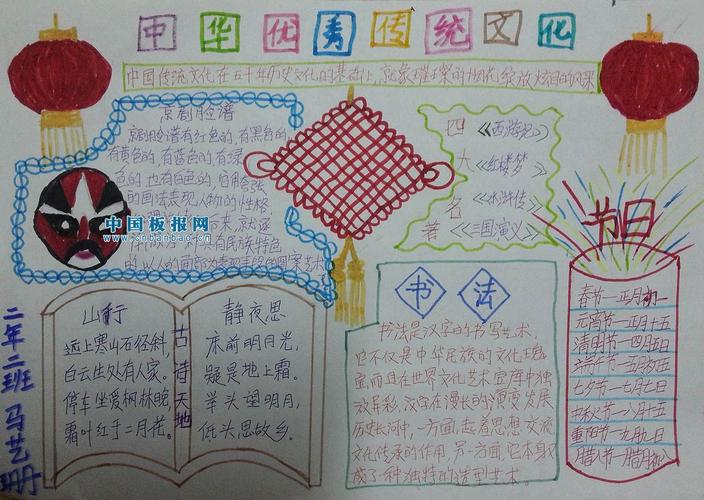 中华优秀传统文化
中国传统文化在五千年历史文化的基础上,就象璀璨的烟花绽放炫目的风采
京剧脸谱
京剧脸谱有红色的,有黑色的,
有黄色的,有蓝色的,有绿
色的,也有白色的,它用夸张
的画法表现人物的性格,
后来,就逐
具有民族特色
的,以人的面部为表现手段的图案艺术
中国板报网
www.cnbanbao.cn
四大名著
《西游记》
《红楼梦》
《水浒传》
《三国演义》
节日
春节—正月初一
元宵节—正月十五
清明节—四月五日
端午节—五月初五
七夕节—七月七日
中秋节—八月十五
重阳节—九月九日
腊八节—腊月初八
山行
远上寒山石径斜,
白云生处有人家。
停车坐爱枫林晚,
霜叶红于二月花。
古诗天地
静夜思
床前明月光,
疑是地上霜。
举头望明月,
低头思故乡。
书法
书法是汉字的书写艺术,
它不仅是中华民族的文化瑰
宝,而且在世界文化艺术宝库中独
放异彩,汉字在漫长的演变发展
历史长河中,一方面,起着思想交流
文化传承的作用,另一方面,它本身又
成了一种独特的造型艺术。
二年二班 马艺珊